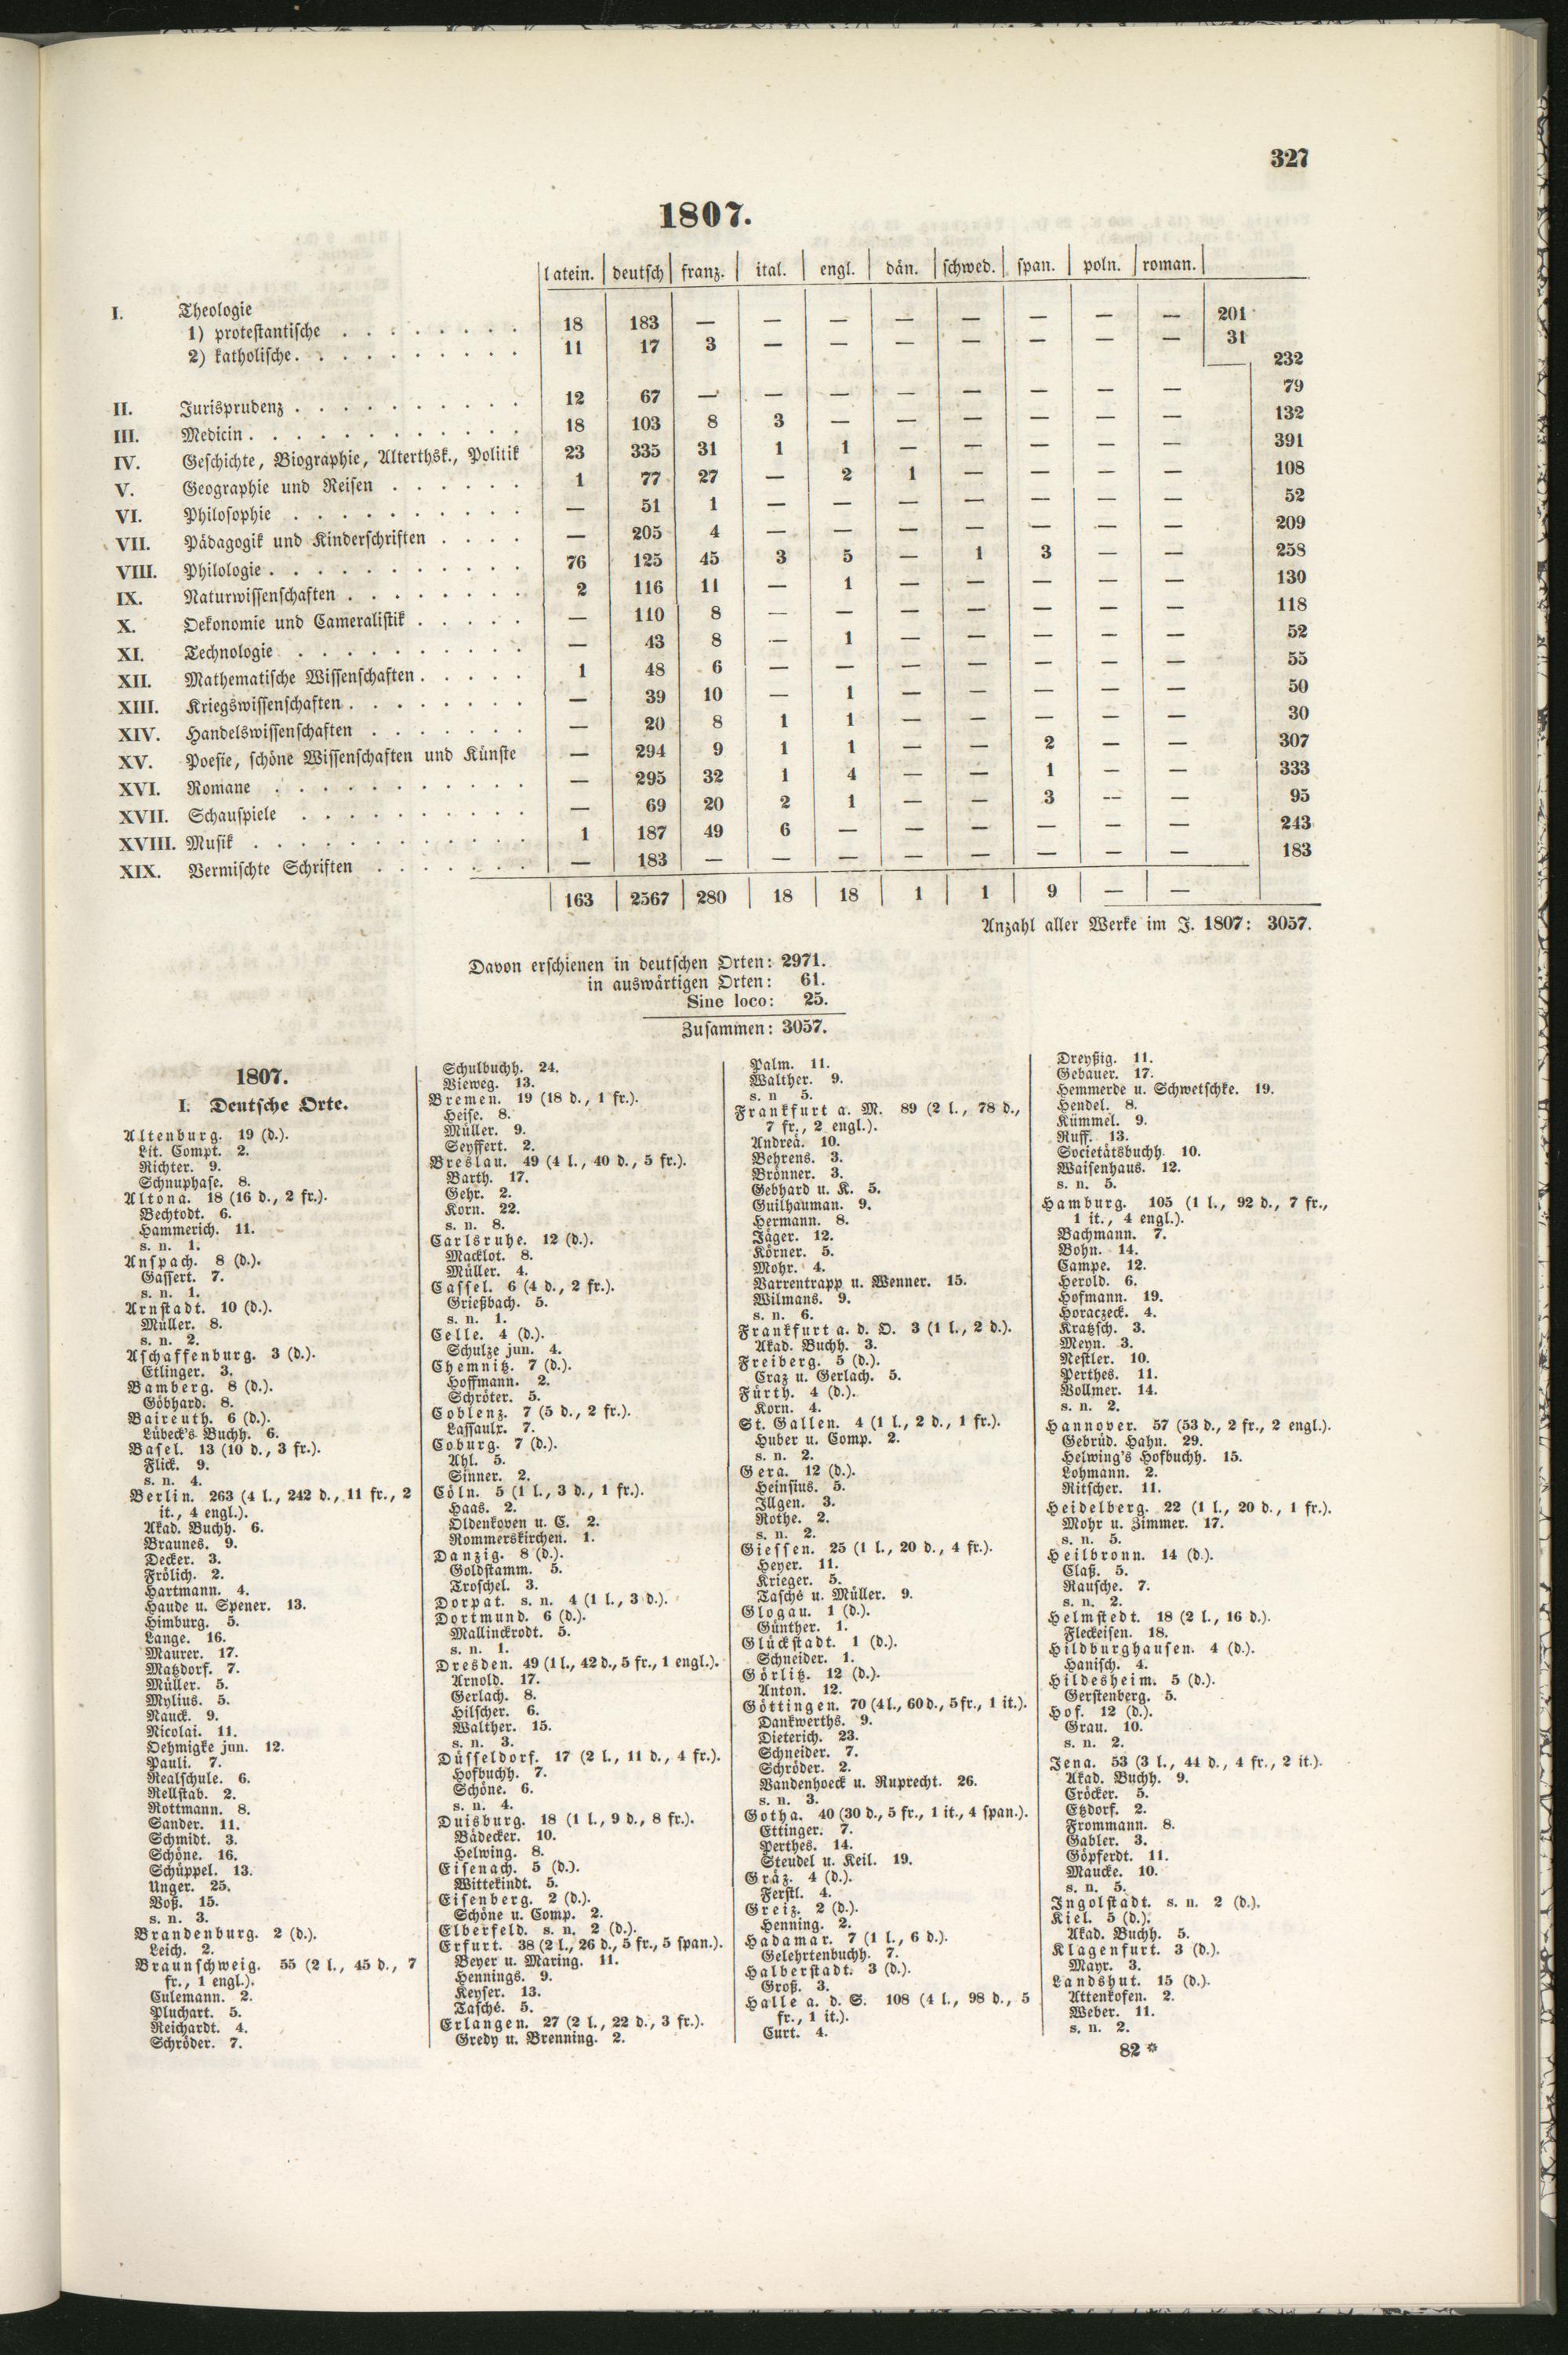 327
1807.
latein. deutsch franz. ital. engl. dän. schwed. span. poln. roman.
I. Theologie
1) protestantische . . . . . . . . 18 183 — — — — — — — — 201
2) katholische. . . . . . . . . . 11 17 3 — — — — — — — 31
232
II. Jurisprudenz . . . . . . . . . . 12 67 — — — — — — — — 79
III. Medicin . . . . . . . . . . . . 18 103 8 3 — — — — — — 132
IV. Geschichte, Biographie, Alterthsk., Politik 23 335 31 1 1 — — — — — 391
V. Geographie und Reisen . . . . . . 1 77 27 — 2 1 — — — — 108
VI. Philosophie . . . . . . . . . . — 51 1 — — — — — — — 52
VII. Pädagogik und Kinderschriften . . . . — 205 4 — — — — — — — 209
VIII. Philologie . . . . . . . . . . . 76 125 45 3 5 — 1 3 — — 258
IX. Naturwissenschaften . . . . . . . . 2 116 11 — 1 — — — — — 130
X. Oekonomie und Cameralistik . . . . . — 110 8 — — — — — — — 118
XI. Technologie . . . . . . . . . . — 43 8 — 1 — — — — — 52
XII. Mathematische Wissenschaften . . . . . 1 48 6 — — — — — — — 55
XIII. Kriegswissenschaften . . . . . . . . — 39 10 — 1 — — — — — 50
XIV. Handelswissenschaften . . . . . . . — 20 8 1 1 — — — — — 30
XV. Poesie, schöne Wissenschaften und Künste — 294 9 1 1 — — 2 — — 307
XVI. Romane . . . . . . . . . . . — 295 32 1 4 — — 1 — — 333
XVII. Schauspiele . . . . . . . . . . — 69 20 2 1 — — 3 — — 95
XVIII. Musik . . . . . . . . . . . . 1 187 49 6 — — — — — — 243
XIX. Vermischte Schriften . . . . . . . — 183 — — — — — — — — 183
163 2567 280 18 18 1 1 9 — —
Anzahl aller Werke im J. 1807: 3057.
Davon erschienen in deutschen Orten: 2971.
in auswärtigen Orten: 61.
Sine loco: 25.
Zusammen: 3057.
1807.
I. Deutsche Orte.
Altenburg. 19 (d.).
Lit. Compt. 2.
Richter. 9.
Schnuphase. 8.
Altona. 18 (16 d., 2 fr.).
Bechtodt. 6.
Hammerich. 11.
s. n. 1.
Anspach. 8 (d.).
Gassert. 7.
s. n. 1.
Arnstadt. 10 (d.).
Müller. 8.
s. n. 2.
Aschaffenburg. 3 (d.).
Etlinger. 3.
Bamberg. 8 (d.).
Göbhard. 8.
Baireuth. 6 (d.).
Lübeck's Buchh. 6.
Basel. 13 (10 d., 3 fr.).
Flick. 9.
s. n. 4.
Berlin. 263 (4 l., 242 d., 11 fr., 2
it., 4 engl.).
Akad. Buchh. 6.
Braunes. 9.
Decker. 3.
Frölich. 2.
Hartmann. 4.
Haude u. Spener. 13.
Himburg. 5.
Lange. 16.
Maurer. 17.
Matzdorf. 7.
Müller. 5.
Mylius. 5.
Nauck. 9.
Nicolai. 11.
Oehmigke jun. 12.
Pauli. 7.
Realschule. 6.
Rellstab. 2.
Rottmann. 8.
Sander. 11.
Schmidt. 3.
Schöne. 16.
Schüppel. 13.
Unger. 25.
Voß. 15.
s. n. 3.
Brandenburg. 2 (d.).
Leich. 2.
Braunschweig. 55 (2 l., 45 d., 7
fr., 1 engl.).
Culemann. 2.
Pluchart. 5.
Reichardt. 4.
Schröder. 7.
Schulbuchh. 24.
Vieweg. 13.
Bremen. 19 (18 d., 1 fr.).
Heise. 8.
Müller. 9.
Seyffert. 2.
Breslau. 49 (4 l., 40 d., 5 fr.).
Barth. 17.
Gehr. 2.
Korn. 22.
s. n. 8.
Carlsruhe. 12 (d.).
Macklot. 8.
Müller. 4.
Cassel. 6 (4 d., 2 fr.).
Grießbach. 5.
s. n. 1.
Celle. 4 (d.).
Schulze jun. 4.
Chemnitz. 7 (d.).
Hoffmann. 2.
Schröter. 5.
Coblenz. 7 (5 d., 2 fr.).
Lassaulx. 7.
Coburg. 7 (d.).
Ahl. 5.
Sinner. 2.
Cöln. 5 (1 l., 3 d., 1 fr.).
Haas. 2.
Oldenkoven u. C. 2.
Rommerskirchen. 1.
Danzig. 8 (d.).
Goldstamm. 5.
Troschel. 3.
Dorpat. s. n. 4 (1 l., 3 d.).
Dortmund. 6 (d.).
Mallinckrodt. 5.
s. n. 1.
Dresden. 49 (1 l., 42 d., 5 fr., 1 engl.).
Arnold. 17.
Gerlach. 8.
Hilscher. 6.
Walther. 15.
s. n. 3.
Düsseldorf. 17 (2 l., 11 d., 4 fr.).
Hofbuchh. 7.
Schöne. 6.
s. n. 4.
Duisburg. 18 (1 l., 9 d., 8 fr.).
Bädecker. 10.
Helwing. 8.
Eisenach. 5 (d.).
Wittekindt. 5.
Eisenberg. 2 (d.).
Schöne u. Comp. 2.
Elberfeld. s. n. 2 (d.).
Erfurt. 38 (2 l., 26 d., 5 fr., 5 span.).
Beyer u. Maring. 11.
Hennings. 9.
Keyser. 13.
Tasché. 5.
Erlangen. 27 (2 l., 22 d., 3 fr.).
Gredy u. Brenning. 2.
Palm. 11.
Walther. 9.
s. n 5.
Frankfurt a. M. 89 (2 l., 78 d.,
7 fr., 2 engl.).
Andreä. 10.
Behrens. 3.
Brönner. 3.
Gebhard u. K. 5.
Guilhauman. 9.
Hermann. 8.
Jäger. 12.
Körner. 5.
Mohr. 4.
Varrentrapp u. Wenner. 15.
Wilmans. 9.
s. n. 6.
Frankfurt a. d. O. 3 (1 l., 2 d.).
Akad. Buchh. 3.
Freiberg. 5 (d.).
Craz u. Gerlach. 5.
Fürth. 4 (d.).
Korn. 4.
St. Gallen. 4 (1 l., 2 d., 1 fr.).
Huber u. Comp. 2.
s. n. 2.
Gera. 12 (d.).
Heinsius. 5.
Illgen. 3.
Rothe. 2.
s. n. 2.
Giessen. 25 (1 l., 20 d., 4 fr.).
Heyer. 11.
Krieger. 5.
Tasché u. Müller. 9.
Glogau. 1 (d.).
Günther. 1.
Glückstadt. 1 (d.).
Schneider. 1.
Görlitz. 12 (d.).
Anton. 12.
Göttingen. 70 (4 l., 60 d., 5 fr., 1 it.).
Dankwerths. 9.
Dieterich. 23.
Schneider. 7.
Schröder. 2.
Vandenhoeck u. Ruprecht. 26.
s. n. 3.
Gotha. 40 (30 d., 5 fr., 1 it., 4 span.).
Ettinger. 7.
Perthes. 14.
Steudel u. Keil. 19.
Gräz. 4 (d.).
Ferstl. 4.
Greiz. 2 (d.).
Henning. 2.
Hadamar. 7 (1 l., 6 d.).
Gelehrtenbuchh. 7.
Halberstadt. 3 (d.).
Groß. 3.
Halle a. d. S. 108 (4 l., 98 d., 5
fr., 1 it.).
Curt. 4.
Dreyßig. 11.
Gebauer. 17.
Hemmerde u. Schwetschke. 19.
Hendel. 8.
Kümmel. 9.
Ruff. 13.
Societätsbuchh. 10.
Waisenhaus. 12.
s. n. 5.
Hamburg. 105 (1 l., 92 d., 7 fr.,
1 it., 4 engl.).
Bachmann. 7.
Bohn. 14.
Campe. 12.
Herold. 6.
Hofmann. 19.
Horaczeck. 4.
Kratzsch. 3.
Meyn. 3.
Nestler. 10.
Perthes. 11.
Vollmer. 14.
s. n. 2.
Hannover. 57 (53 d., 2 fr., 2 engl.).
Gebrüd. Hahn. 29.
Helwing's Hofbuchh. 15.
Lohmann. 2.
Ritscher. 11.
Heidelberg. 22 (1 l., 20 d., 1 fr.).
Mohr u. Zimmer. 17.
s. n. 5.
Heilbronn. 14 (d.).
Claß. 5.
Rausche. 7.
s. n. 2.
Helmstedt. 18 (2 l., 16 d.).
Fleckeisen. 18.
Hildburghausen. 4 (d.).
Hanisch. 4.
Hildesheim. 5 (d.).
Gerstenberg. 5.
Hof. 12 (d.).
Grau. 10.
s. n. 2.
Jena. 53 (3 l., 44 d., 4 fr., 2 it.).
Akad. Buchh. 9.
Cröcker. 5.
Etzdorf. 2.
Frommann. 8.
Gabler. 3.
Göpferdt. 11.
Maucke. 10.
s. n. 5.
Ingolstadt. s. n. 2 (d.).
Kiel. 5 (d.).
Akad. Buchh. 5.
Klagenfurt. 3 (d.).
Mayr. 3.
Landshut. 15 (d.).
Attenkofen. 2.
Weber. 11.
s. n. 2.
82 *